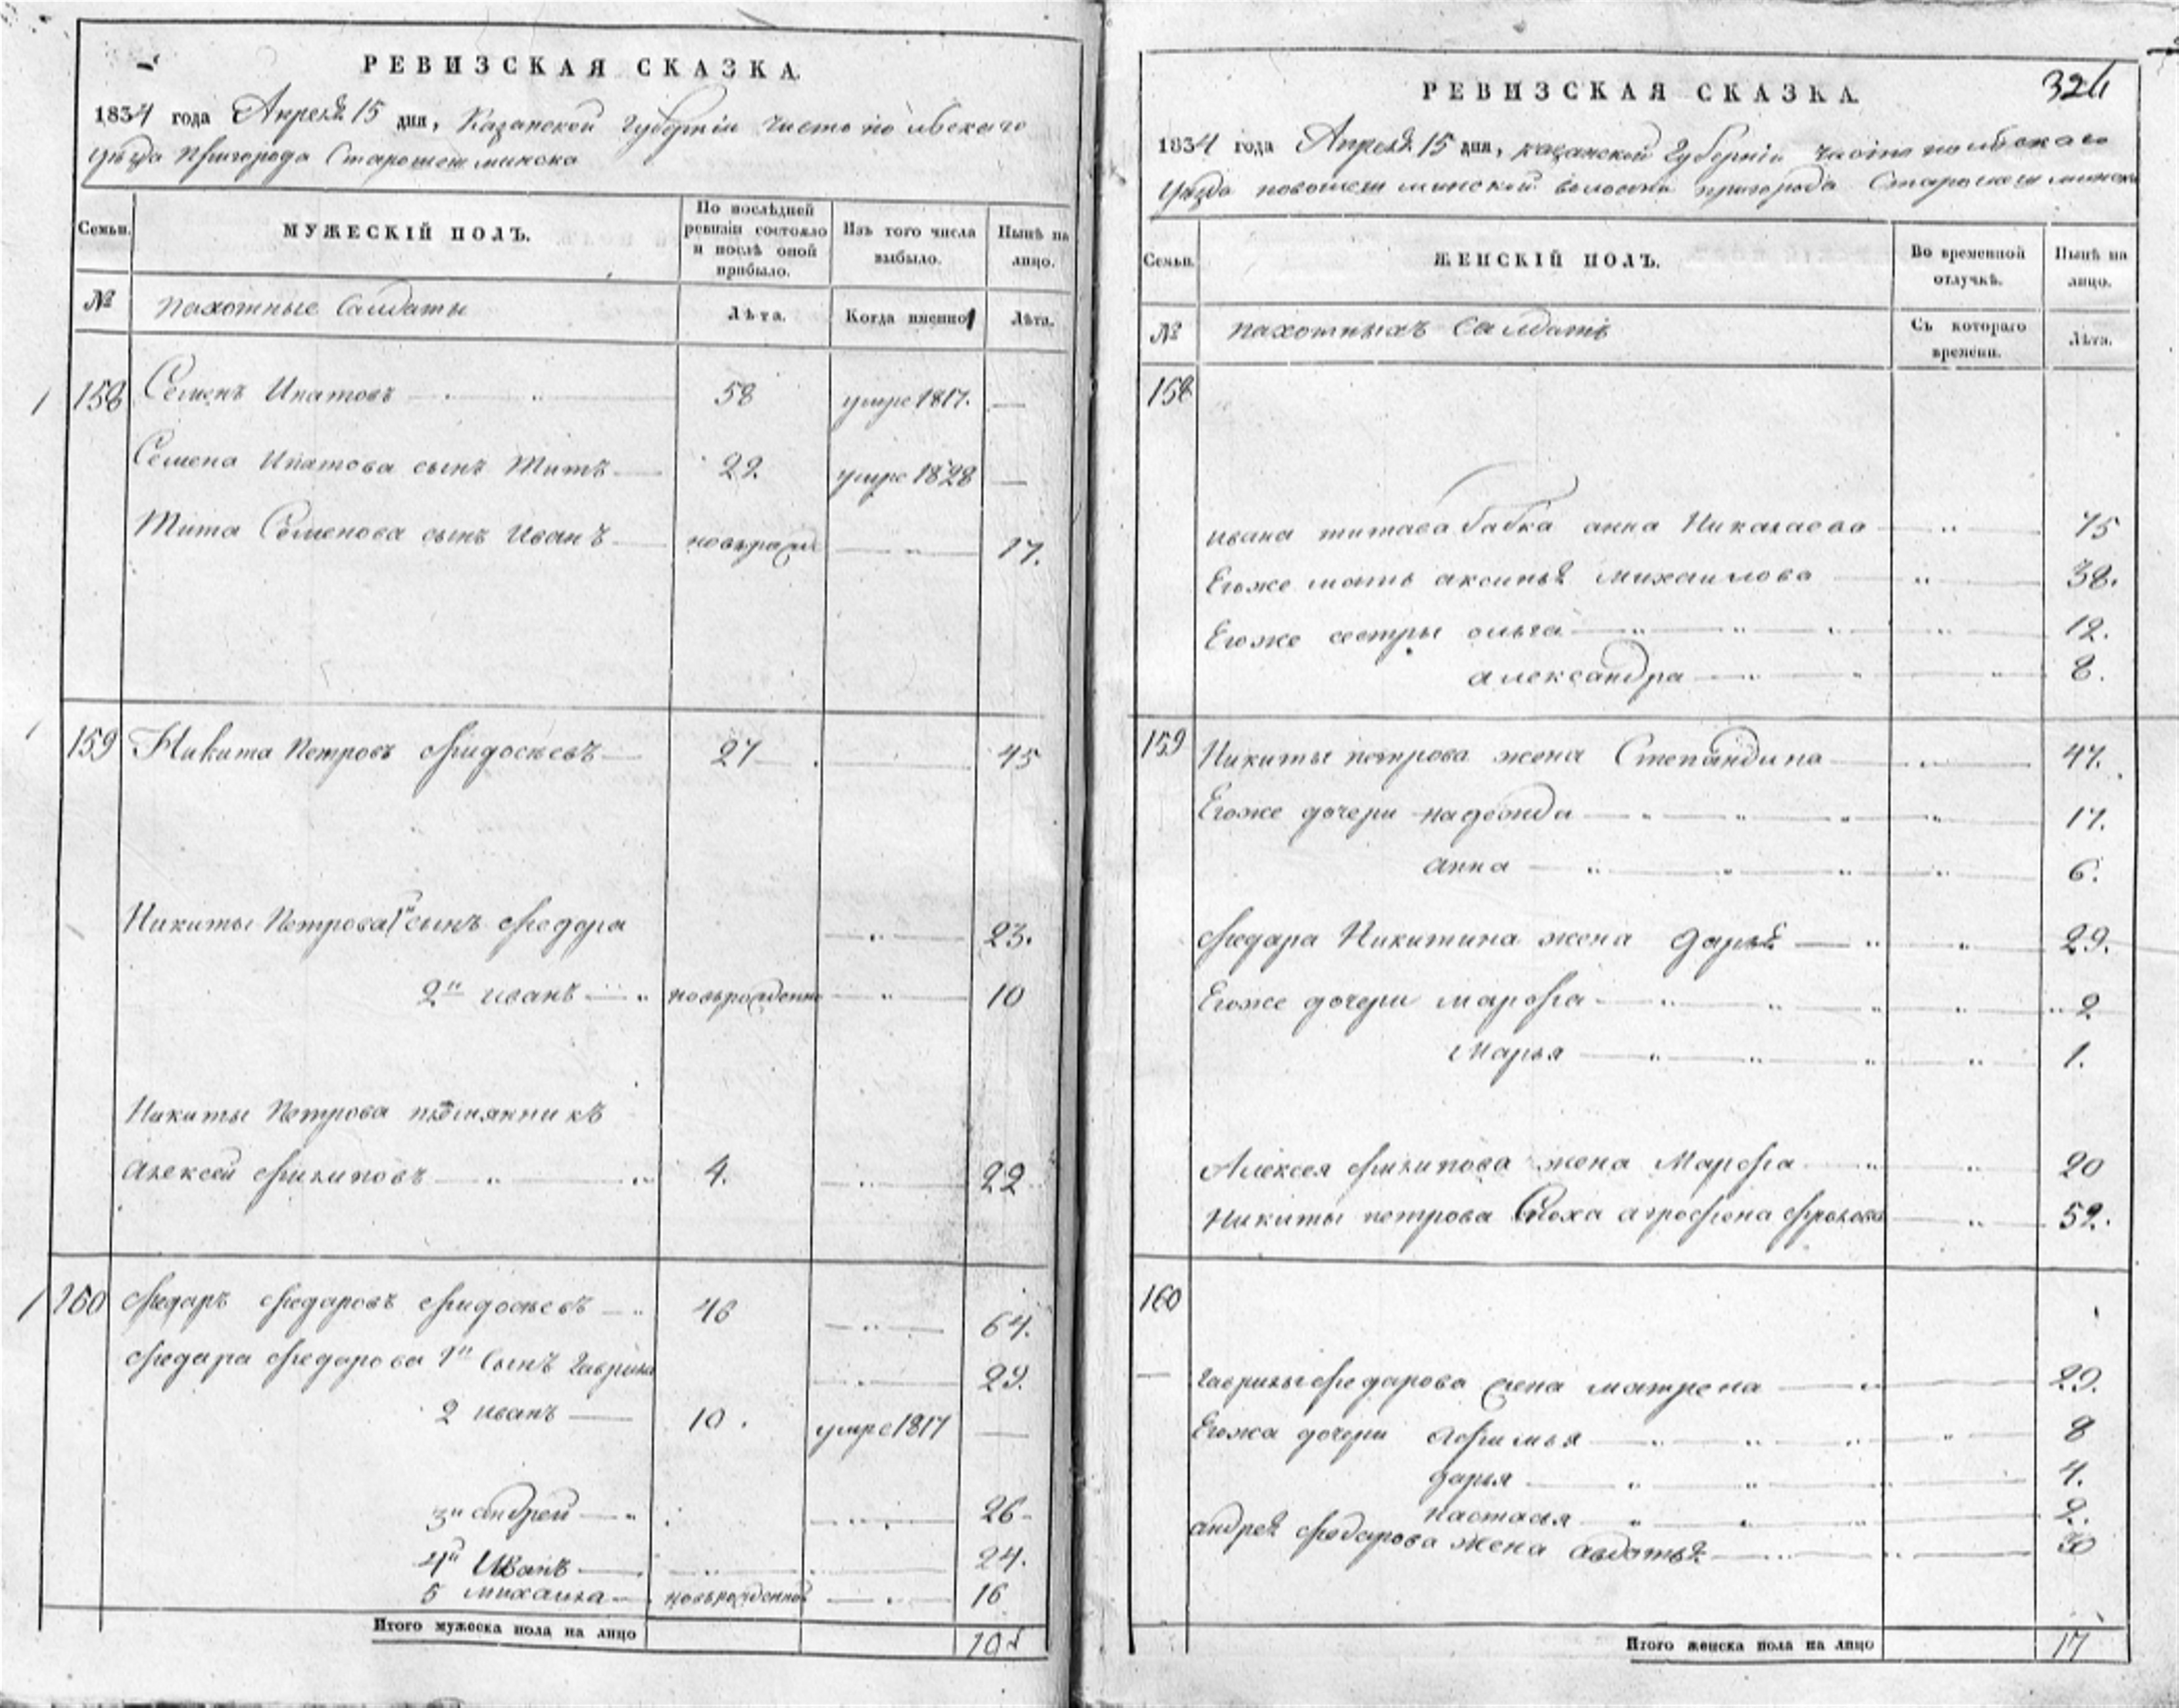 РЕВИЗСКАЯ СКАЗКА.
1834 года Апреля 15 дня, Казанской Губернiи Чистопольскаго
уѣзда Пригорода Старошешминска
Семьи.
МУЖЕСКIЙ ПОЛЪ.
По послѣдней ревизiи состояло и послѣ оной прибыло.
Изъ того числа выбыло.
Нынѣ на лицо.
№
пахотные Салдаты
Лѣта.
Когда именно
Лѣта.
1 158 Семенъ Ипатовъ 58 умре 1817. —
Семена Ипатова сынъ Титъ 22 умре 1828 —
Тита Семенова сынъ Иванъ 17.
159 Никита Петровъ Фидосѣевъ 27 45
Никиты Петрова 1й сынъ Федора 23.
2й иванъ новърожденно 10
Никиты Петрова племянникъ
алексей Филиповъ 4. 22
160 Федаръ Федаровъ Фидосѣевъ 46 64.
Федара Федарова 1й Сынъ Гаврила 29.
2 иванъ 10. умре 1817 —
3й андрей 26
4й Иванъ 24.
5 михаила новърожденной 16
Итого мужеска пола на лицо 10
РЕВИЗСКАЯ СКАЗКА.
324
1834 года Апреля 15 дня, казанской Губернiи Чистопольскаго
Уѣзда новошешминской волости пригорода Старошешминска
Семьи.
ЖЕНСКIЙ ПОЛЪ.
Во временной отлучкѣ.
Нынѣ на лицо.
№
пахотныхъ Салдатъ
Съ котораго времени.
Лѣта.
158
ивана титава бабка анна Николаева 75
Егоже мать аксинья михаилова 38.
Егоже сестры ольга 12.
александра 8.
159 Никиты петрова жена Степандина 47.
Егоже дочери надежда 17.
анна 6.
Федара Никитина жена дарья 29.
Егоже дочери марфа 2
Марья 1.
Алексея филипова жена Марфа 20
Никиты петрова Сноха агрофена фролова 52.
160
гаврилы федарова жена матрена 29.
Егожа дочери афимья 8
дарья 4.
настасья 2.
андрея федарова жена авдатья 30
Итого женска пола на лицо 17